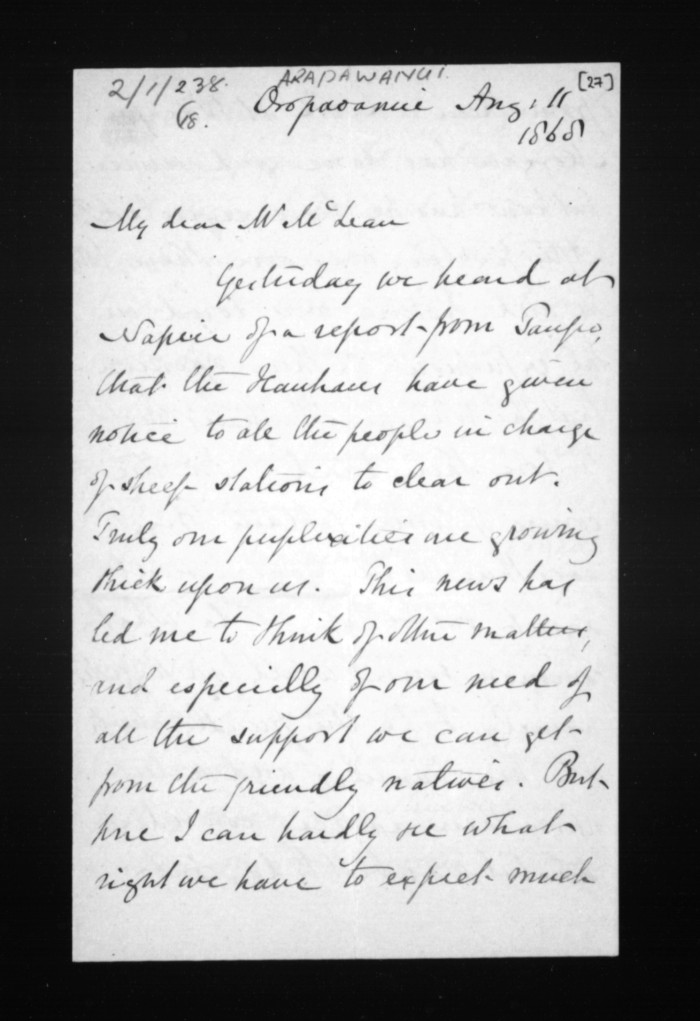 2/1/238.
ARAPAWANUI.
[27]
18.
Oropaoanui Aug. 11
1868
My dear Mr McLean
Yesterday we heard at
Napier of a report from Taupo,
that the Hauhaus have given
notice to all the people in charge
of sheep stations to clear out.
Truly our perplexities are growing
thick upon us. This news has
led me to think of other matters,
and especially of our need of
all the support we can get
from the friendly natives. But
here I can hardly see what
right we have to expect much